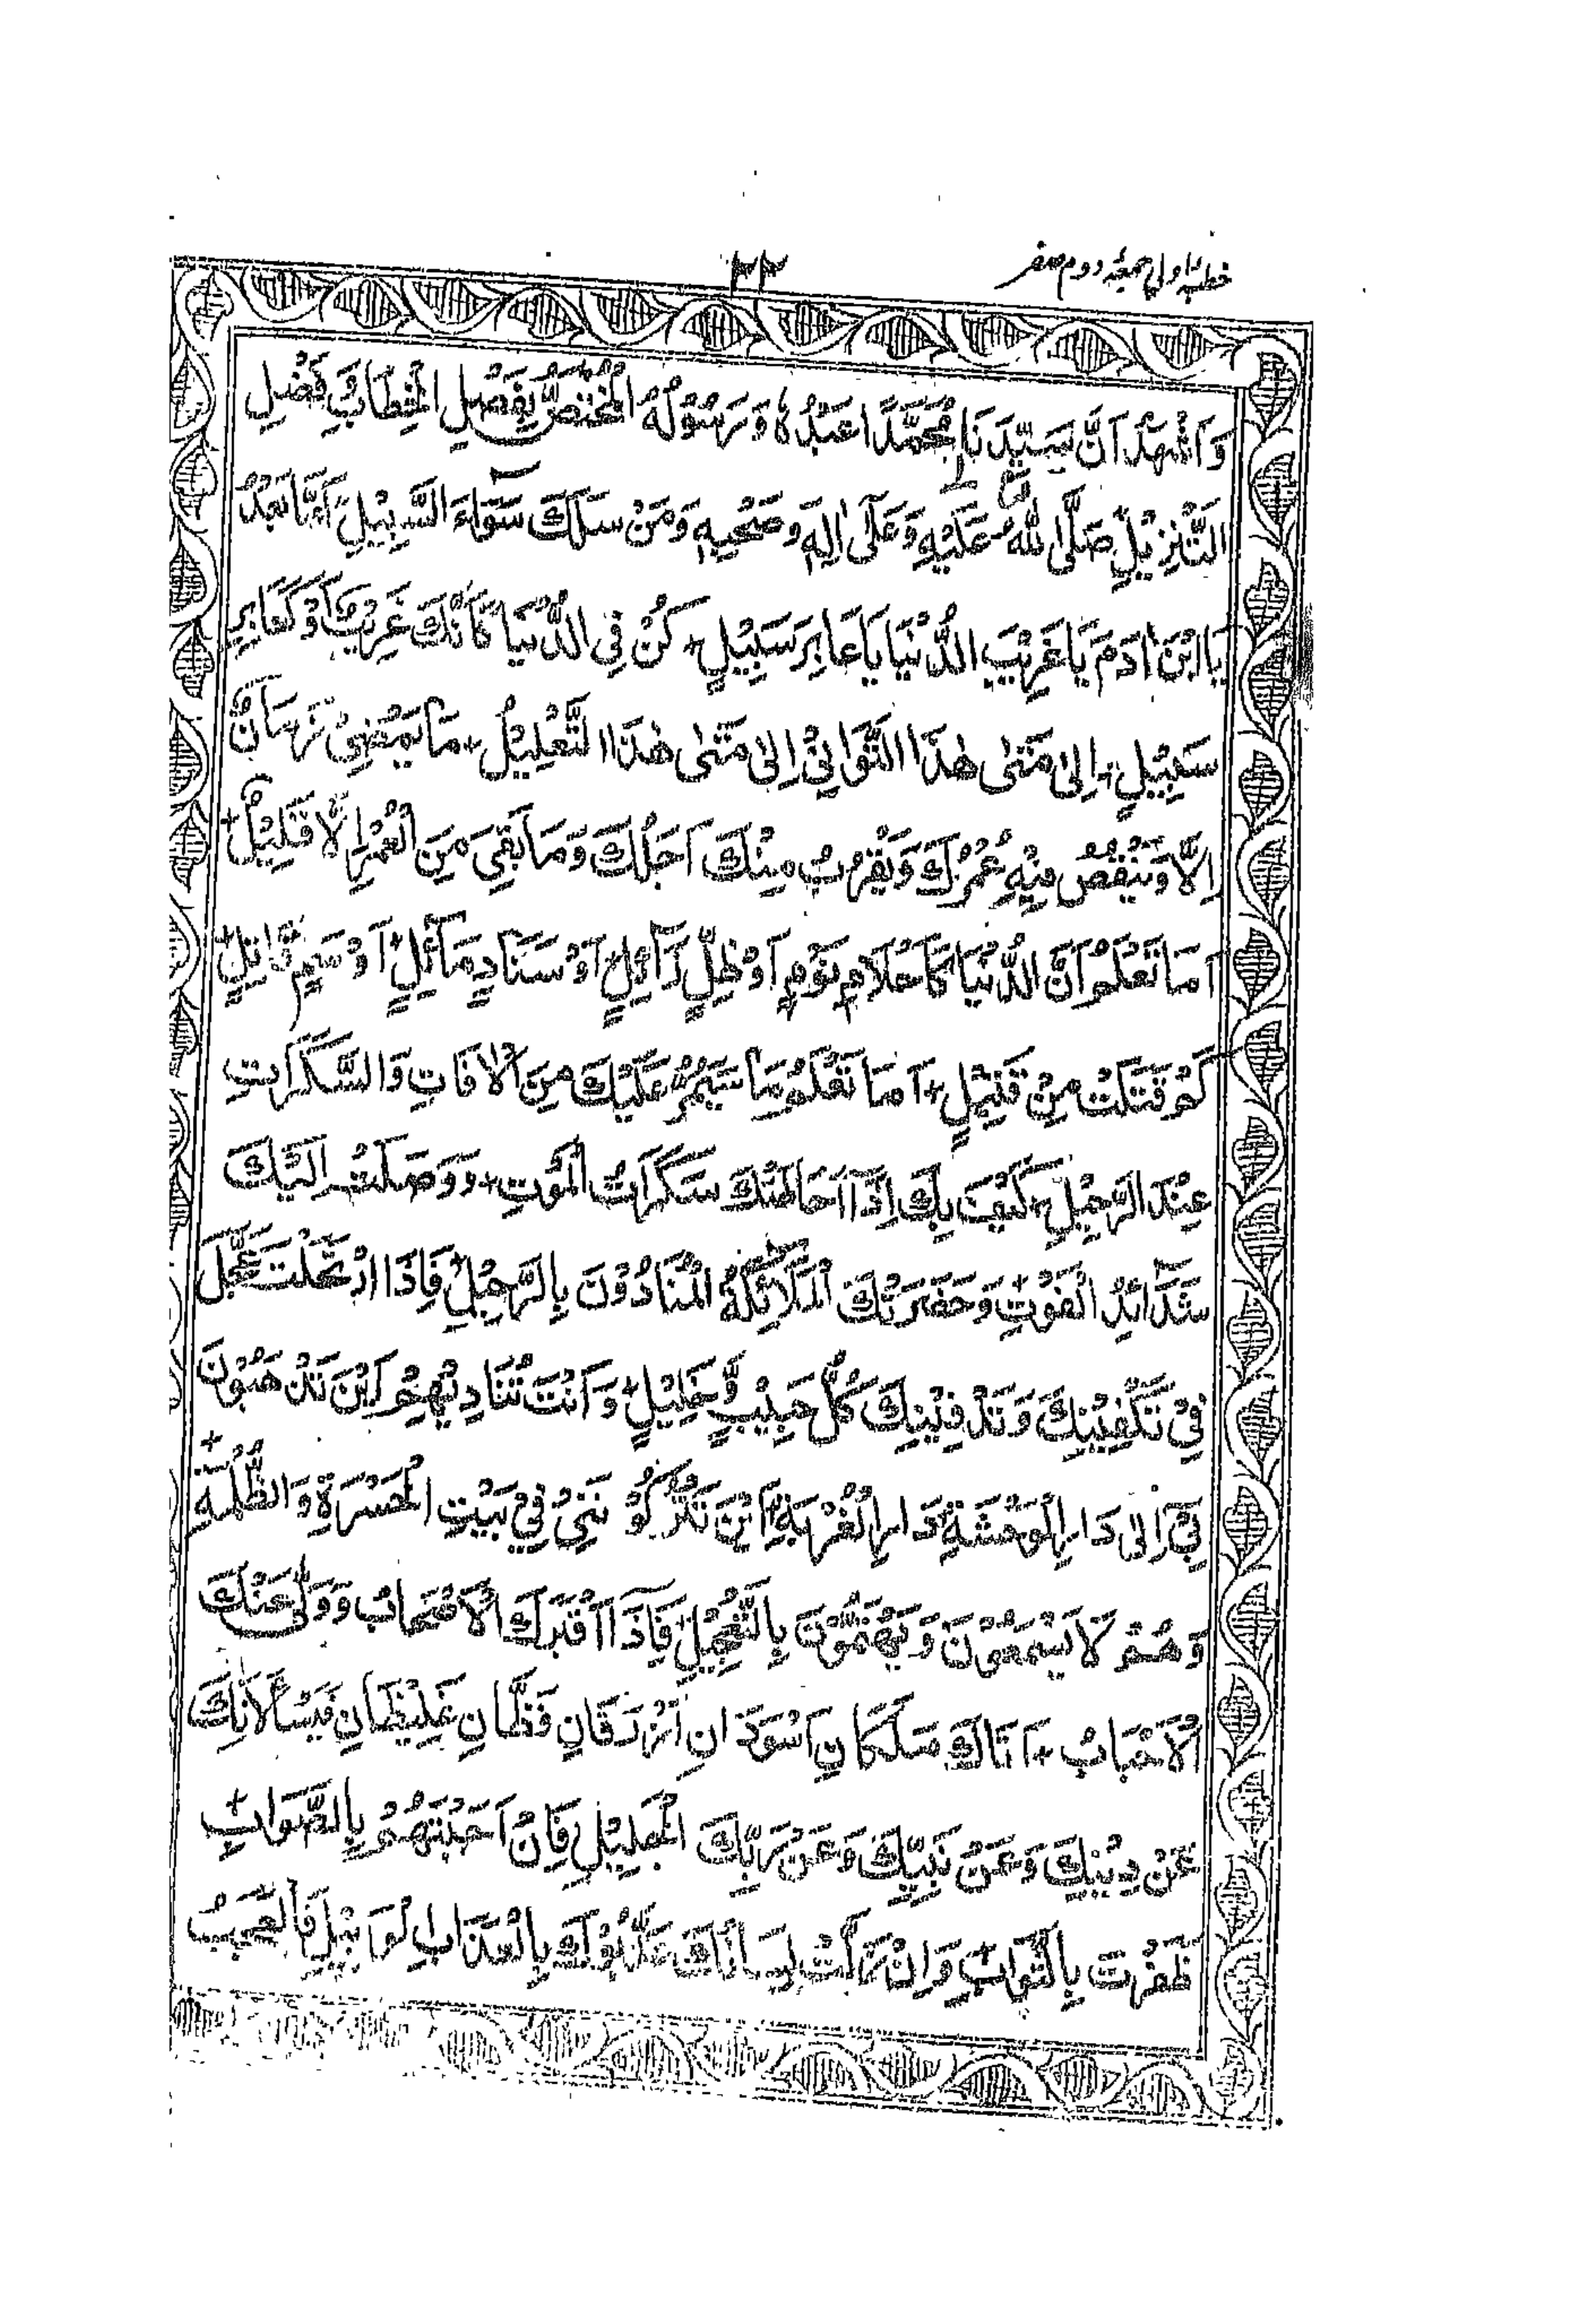 خطبہ اولی جمعۂ دوم صفر
٣٣
وَاَشْهَدُ اَنَّ سَيِّدَنَا مُحَمَّدًا عَبْدُهٗ وَرَسُوْلُهُ الْمُخْتَصُّ بِفَصْلِ الْخِطَابِ فَضْلِ
التَّنْزِيْلِ صَلَّى اللّٰهُ عَلَيْهِ وَعَلٰٓى اٰلِهٖ وَصَحْبِهٖ وَمَنْ سَلَكَ سَوَآءَ السَّبِيْلِ اَمَّا بَعْدُ
يَا ابْنَ اٰدَمَ يَا غَرِيْبَ الدُّنْيَا يَا عَابِرَ سَبِيْلٍ + كُنْ فِى الدُّنْيَا كَاَنَّكَ غَرِيْبٌ اَوْ كَعَابِرِ
سَبِيْلٍ + اِلٰى مَتٰى هٰذَا التَّوَانِيْ اِلٰى مَتٰى هٰذَا التَّعْلِيْلُ + مَا يَمْضِيْ زَمَانٌ
اِلَّا وَتَنْقُصُ فِيْهِ عُمُرُكَ وَيَقْرُبُ مِنْكَ اَجَلُكَ وَمَا بَقِيَ مِنَ الْعُمُرِ اِلَّا قَلِيْلٌ +
اَمَا تَعْلَمُ اَنَّ الدُّنْيَا كَاَحْلَامِ نَوْمٍ اَوْ ظِلٍّ زَآئِلٍ + اَوْ سَنَادٍ مَآئِلٍ + اَوْ سَمٍّ قَاتِلٍ +
كَمْ قَتَلَتْ مِنْ قَتِيْلٍ + اَمَا تَعْلَمُ مَا سَيَمُرُّ عَلَيْكَ مِنَ الْاٰفَاتِ وَالسَّكَرَاتِ
عِنْدَ الرَّحِيْلِ + كَيْفَ بِكَ اِذَآ اَحَاطَتْكَ سَكَرَاتُ الْمَوْتِ + وَوَصَلَتْ اِلَيْكَ
شَدَآئِدُ الْفَوْتِ + وَحَضَرَتْكَ الْمَلٰٓئِكَةُ الْمُنَادُوْنَ بِالرَّحِيْلِ + فَاِذَا ارْتَحَلْتَ عَجَّلَ
فِيْ تَكْفِيْنِكَ وَتَدْفِيْنِكَ كُلُّ حَبِيْبٍ وَّخَلِيْلٍ + وَاَنْتَ تُنَادِيْهِمْ اَيْنَ تَذْهَبُوْنَ
بِيْ اِلٰى دَارِ الْوَحْشَةِ دَارِ الْغُرْبَةِ + اَيْنَ تَتْرُكُوْنَنِيْ فِيْ بَيْتِ الْحَسْرَةِ وَالظُّلْمَةِ +
وَهُمْ لَا يَسْمَعُوْنَ وَيَهْتَمُّوْنَ بِالتَّعْجِيْلِ + فَاِذَآ اَقْبَرَكَ الْاَصْحَابُ وَوَلّٰى عَنْكَ
الْاَحْبَابُ + اَتَاكَ مَلَكَانِ اَسْوَدَانِ اَزْرَقَانِ فَظَّانِ غَلِيْظَانِ فَيَسْاَلَانِكَ
عَنْ دِيْنِكَ وَعَنْ نَبِيِّكَ وَعَنْ رَبِّكَ الْجَلِيْلِ فَاِنْ اَجَبْتَهُمْ بِالصَّوَابِ +
ظَفِرْتَ بِالثَّوَابِ وَاِنْ زَلَّتْ لِسَانُكَ عَذَّبُوْكَ بِالْعَذَابِ الْوَبِيْلِ فَالْعَجَبُ